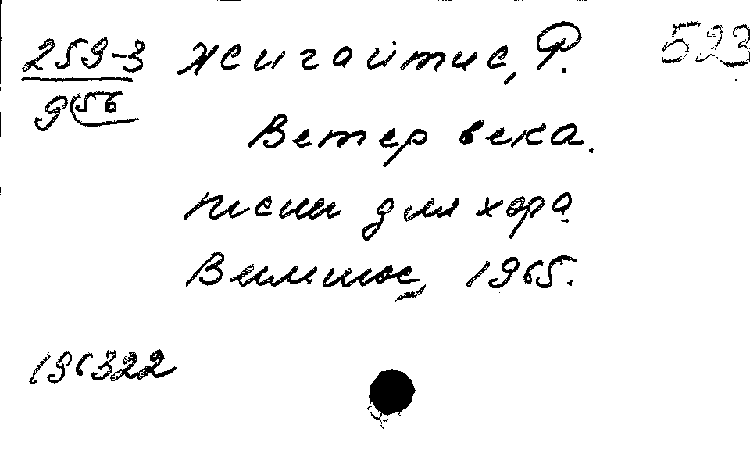 259-3 Жигайтис, Р. 523
9(56
Ветер века.
песни для хора
Вильнюс, 1965.
196322